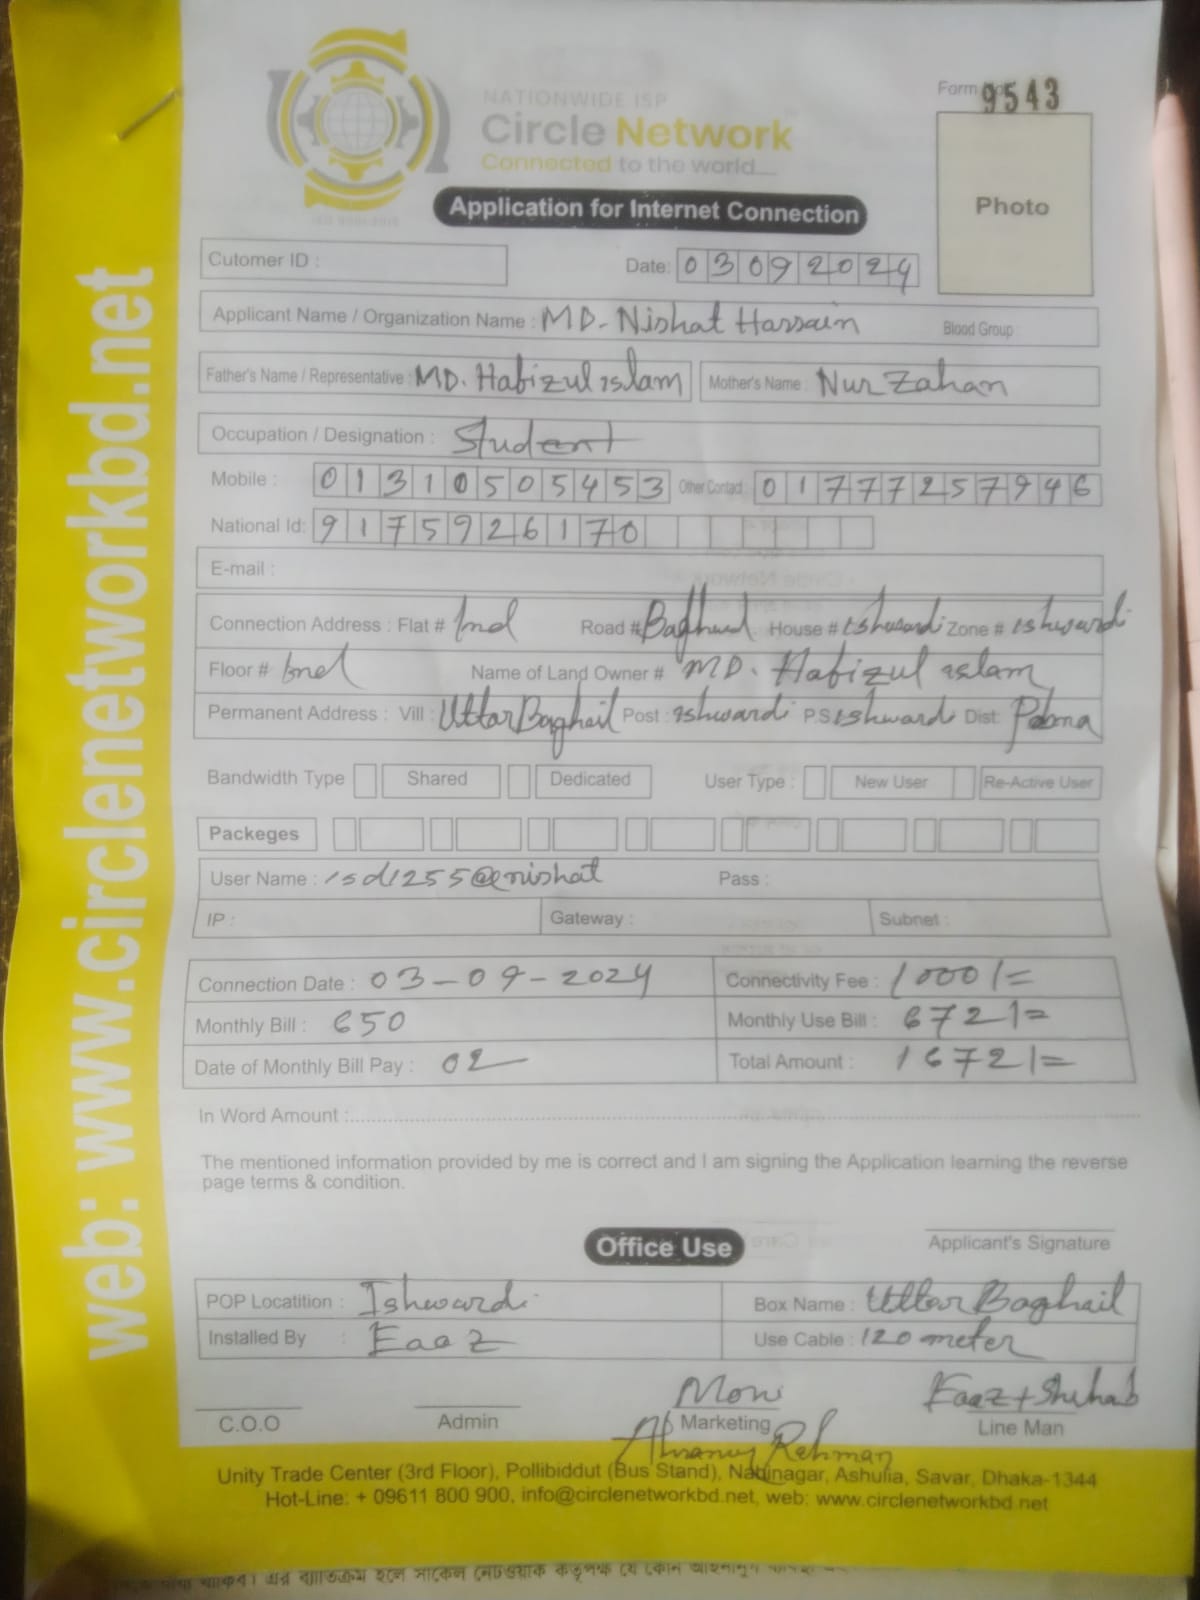 web: www.circlenetworkbd.net
NATIONWIDE ISP
Circle Network
Connected to the world...
Form 9543
Photo
Application for Internet Connection
Cutomer ID :
Date: 03092024
Applicant Name / Organization Name : MD. Nishat Hassain Blood Group :
Father's Name / Representative : MD. Habizul islam Mother's Name : Nur Zahan
Occupation / Designation : Student
Mobile : 01310505453 Other Contact : 01777257946
National Id: 9175926170
E-mail :
Connection Address : Flat # Road # House # Ishwardi Zone # ishwardi
Floor # Name of Land Owner # MD. Habizul islam
Permanent Address : Vill : Uttar Baghail Post : ishwardi P.S ishwardi Dist: Pabna
Bandwidth Type Shared Dedicated User Type : New User Re-Active User
Packeges
User Name : isd1255@nishat Pass :
IP : Gateway : Subnet :
Connection Date : 03-09-2024 Connectivity Fee : 1000/=
Monthly Bill : 650 Monthly Use Bill : 672/=
Date of Monthly Bill Pay : 02 Total Amount : 1672/=
In Word Amount :
The mentioned information provided by me is correct and I am signing the Application learning the reverse
page terms & condition.
Applicant's Signature
Office Use
POP Locatition : Ishwardi Box Name : Uttar Baghail
Installed By : Eaaz Use Cable : 120 meter
Moni Eaaz + Shihab
C.O.O Admin Marketing Line Man
Rehman
Unity Trade Center (3rd Floor), Pollibiddut (Bus Stand), Nabinagar, Ashulia, Savar, Dhaka-1344
Hot-Line: + 09611 800 900, info@circlenetworkbd.net, web: www.circlenetworkbd.net